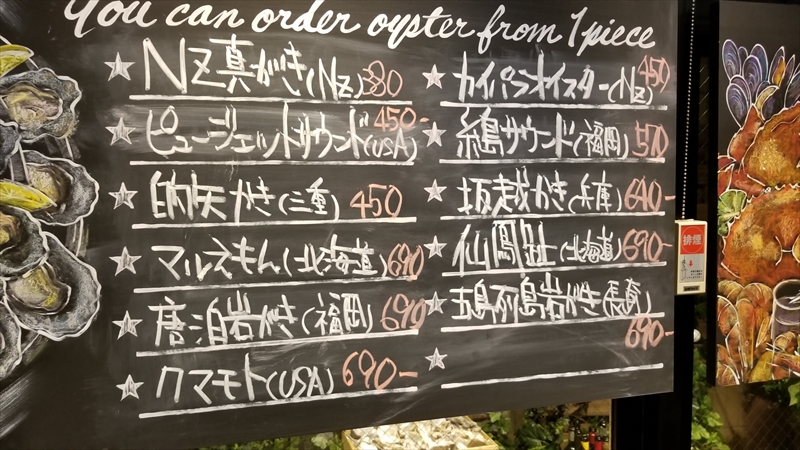 You can order oyster from 1 piece
☆ NZ真がき(NZ) 380
☆ ピュージェットサウンド(USA) 450-
☆ 的矢かき(三重) 450
☆ マルえもん(北海道) 690
☆ 唐泊岩がき(福岡) 690
☆ クマモト(USA) 690-
☆ カイパラオイスター(NZ) 450
☆ 糸島サウンド(福岡) 570
☆ 坂越かき(兵庫) 640-
☆ 仙鳳趾(北海道) 690-
☆ 五島列島岩がき(長崎) 690-
☆
排煙